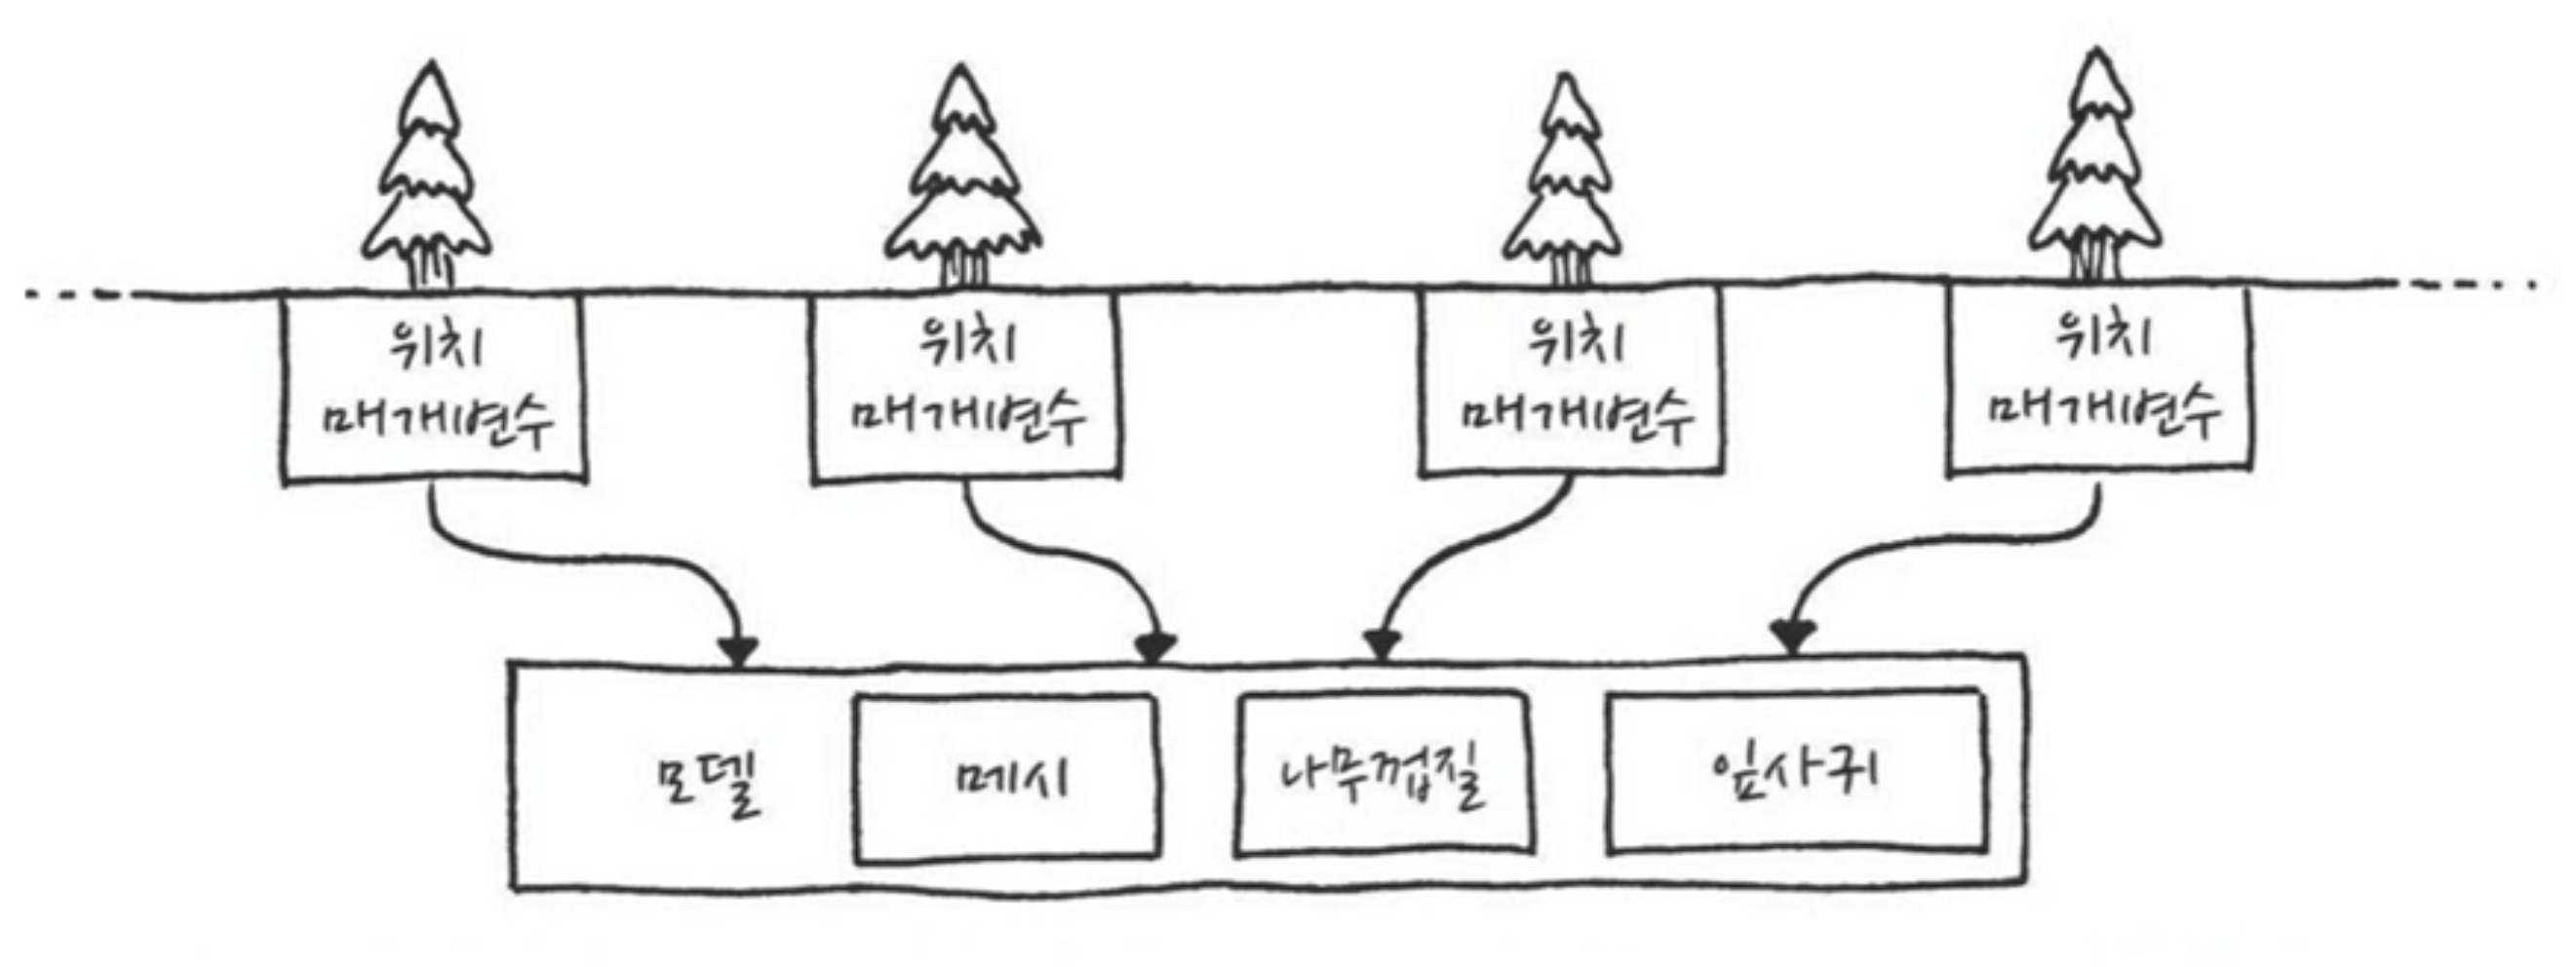 위치
매개변수
위치
매개변수
위치
매개변수
위치
매개변수
모델
메시
나무껍질
잎사귀